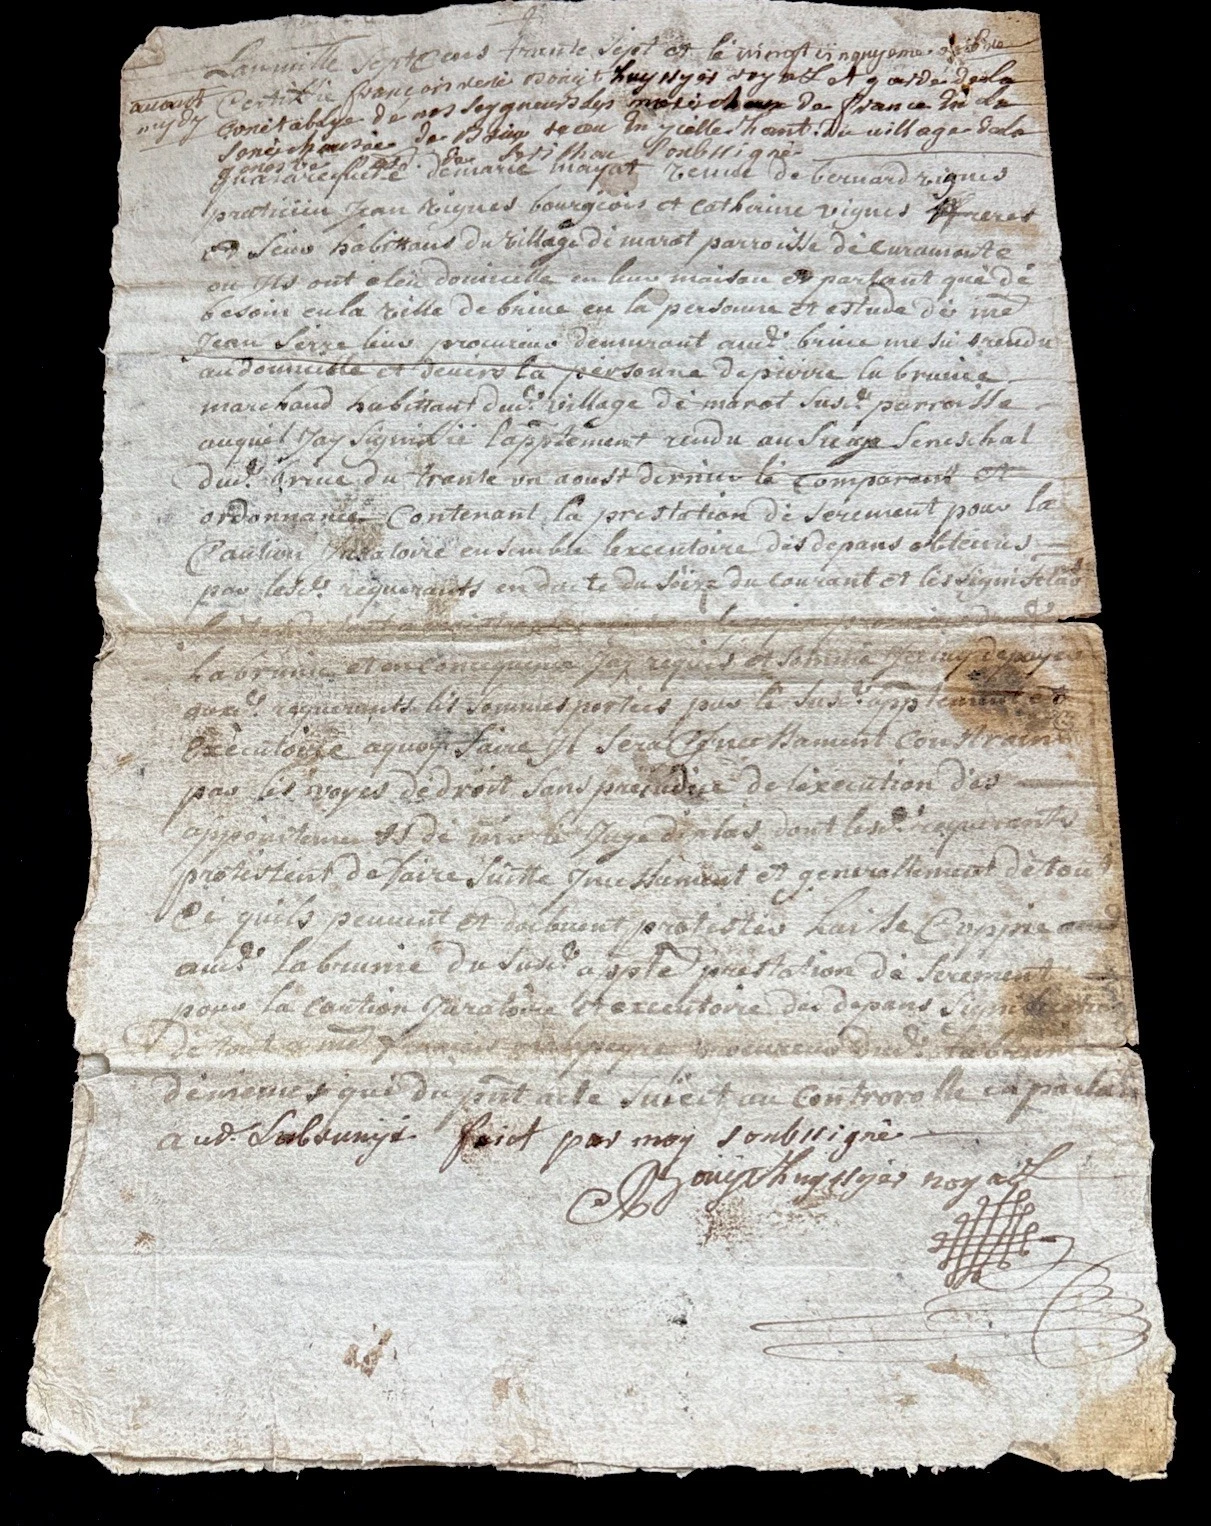 Lan mille sept Cens trante sept et le vingt cinqyeme
avant
midy
Certiffie françois huyssyer royall et garde de la
Conetablye de nos seygneurs les marechaux de france en la
senechaussée de Brive receu en yielle du village de la
soubssigné
qua la req^te de marie mayat veuve de bernard vignes
praticien Jean vignes bourgeois et Catherine vignes freres
et seur habittans du village de marot parroisse de Curamonte
ou Ils ont eleu domicille en leur maison et partant que de
besoin en la ville de brive en la personne et estude de me
Jean serre leur procureur demurant aud^t brive me suis rendu
au domicille et devers la personne de pierre la brunie
marchand habittant dud^t village de marot susd^t parroisse
auquel Jay signiffié lapptement rendu au siege seneschal
dud^t brive du trante un aoust dernier le comparent et
ordonnance Contenant la prestation de serement pour la
Caution Juratoire ensemble lexecutoire des depans obtenus
par lesd^s requerants en datte du seize du courant et les signiffie
labrunie et en Consequence Jay requis et sommé de payer
auxd^s requerants les sommes portées par le susd^t apptement et
executoire a quoy faire Il sera Incessament Constraint
par les voyes de droit sans prejudice de lexecution des
appointements de le Juge dont lesd^s requerants
protestent de faire suitte Incessament et generallement de tout
Ce quils peuvent et doibvent protester laisse Coppie
aud^t labrunie du susd^t appté prestation de serement
pour la caution Juratoire et executoire des depans signiffication
de tout a me françois procureur dud^t labrunie
dememe que du p^nt acte suiect au Controrolle en parlant
aud. Labrunye faict par moy soubssigné
Bouyt huyssyer royall